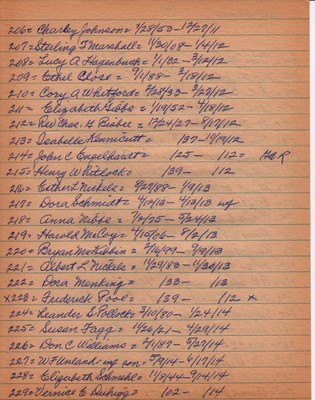 206= Charley Johnson= 1/28/53-12/27/11
207= Sterling T Marshall= 1/30/08-1/4/12
208= Lucy A Hagenbuch= 1/32-3/12/12
209= Ethel Close= 9/1/88-3/18/12
210= Cory A Whitford= 3/28/33-3/27/12
211= Elizabeth Gibbs= 1/19/52-4/18/12
212= Rev Chas. H Bisbee= 12/24/27-8/17/12
213= Isabelle Kennicutt= 137-10/19/12
214= John C Engelhardt= 125- 112=
215= Henry W Pitlock= 139- 112
216= Esther L Nickels= 9/29/88- 1/9/13
217= Dora Schmidt= 4/10/13-4/12/13
218= Anna Nebbe= 7/2/75-5/24/13
219= Harold McCoy= 4/15/06-8/2/13
220= Bryan McKibbin= 9/16/99-9/9/13
221= Albert L Nickels= 11/29/83-11/30/13
222= Dora Menking= 133- 113
x223= Frederick Pool= 139- 112 x
224= Leander B Pollock= 3/10/80-1/24/14
225= Susan Fagg= 11/26/21-4/29/14
226= Don C Williams= 2/1/89-5/27/14
227= W F Umland- son= 5/9/14-6/17/14
228= Elizabeth Schmehl= 11/8/44-9/14/14
229= Vernice E 102- 114